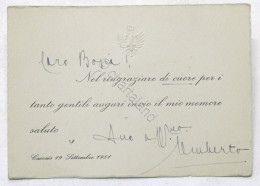 Caro Bogia!
Nel ringraziare di cuore per i
tanto gentili auguri invio il mio memore
saluto
Umberto
Cascais 19 Settembre 1951